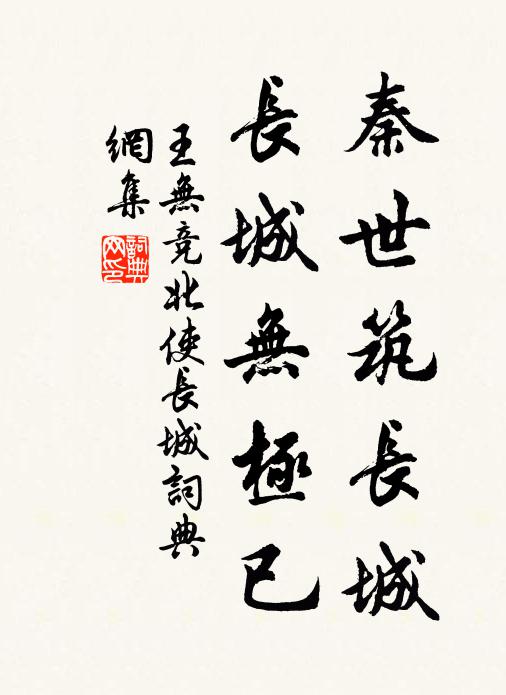 秦世筑長城
長城無極已
王無競北使長城詞典
網集
詞典网印